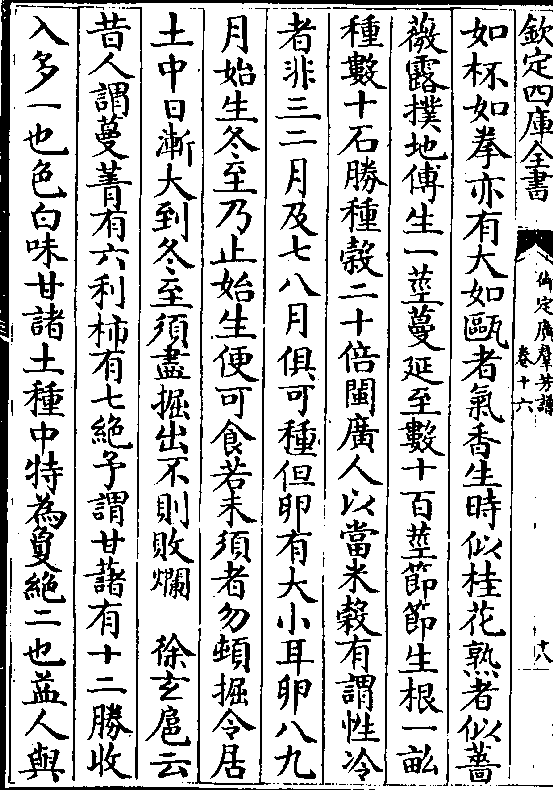 欽定四庫全書
御定廣羣芳譜
卷十六
十八
如杯如拳亦有大如甌者氣香生時似桂花熟者似薔
薇露撲地傳生一莖蔓延至數十百莖節節生根一畝
種數十石勝種穀二十倍閩廣人以當米穀有謂性冷
者非三二月及七八月俱可種但卵有大小耳卵八九
月始生冬至乃止始生便可食若未須者勿頓掘令居
土中日漸大到冬至須盡掘出不則敗爛　徐玄扈云
昔人謂蔓菁有六利柿有七絶予謂甘藷有十二勝收
入多一也色白味甘諸土種中特為夐絶二也益人與